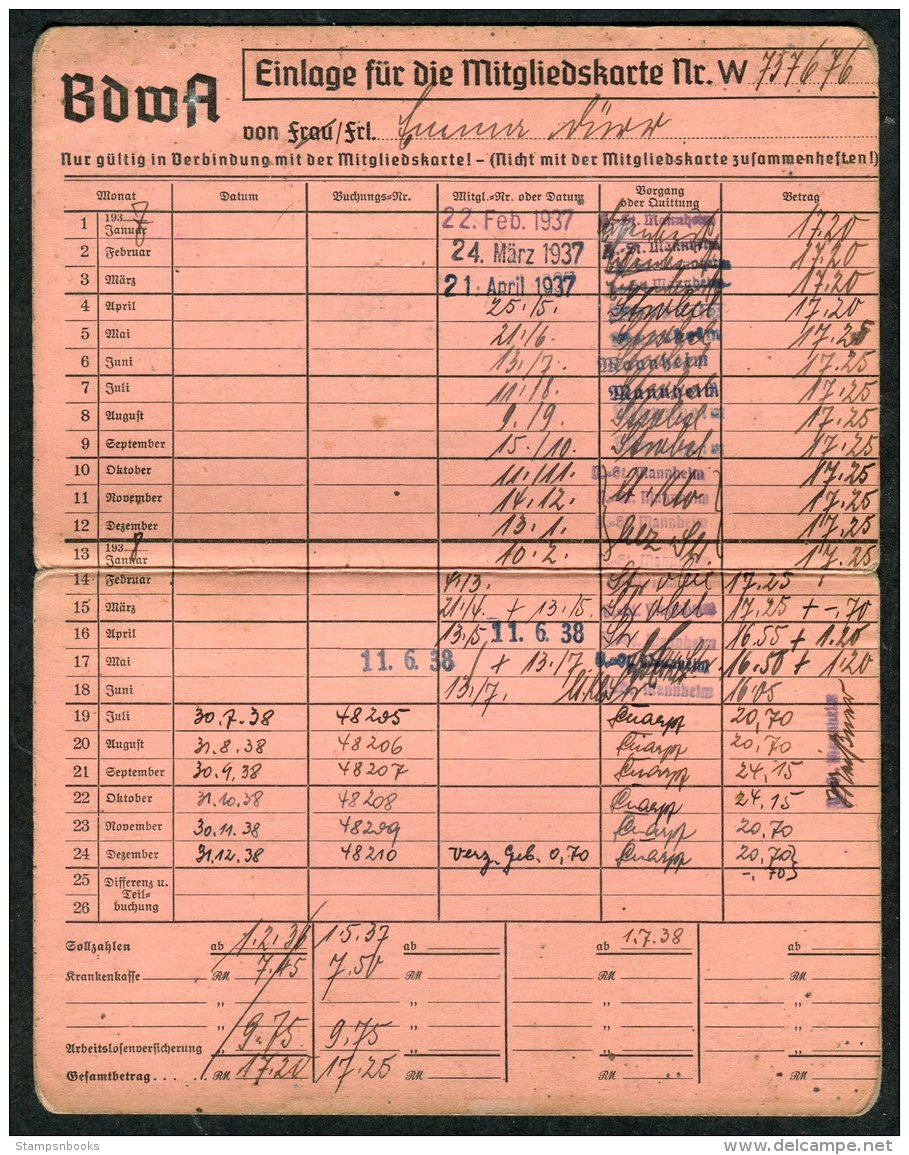 BdwA
Einlage für die Mitgliedskarte Nr. W 757676
von Frau/Frl. Emma Dürr
Nur gültig in Verbindung mit der Mitgliedskarte! – (Nicht mit der Mitgliedskarte zusammenheften!)
Monat Datum Buchungs-Nr. Mitgl.-Nr. oder Datum Vorgang oder Quittung Betrag
1 193 7 Januar 22. Feb. 1937 Mannheim 17.20
2 Februar 24. März 1937 Mannheim 17.20
3 März 21. April 1937 Mannheim 17.20
4 April 25./5. 17.20
5 Mai 21./6. 17.25
6 Juni 13./7. Mannheim 17.25
7 Juli 11./8. Mannheim 17.25
8 August 9./9. 17.25
9 September 15./10. 17.25
10 Oktober 11./11. Mannheim 17.25
11 November 14.12. Mannheim 17.25
12 Dezember 13.1. Mannheim 17.25
13 193 8 Januar 10.2. Mannheim 17.25
14 Februar 4./3. 17.25
15 März 21./4. + 13./5. 17.25 + -.70
16 April 13./5. 11.6.38 Mannheim 16.55 + 1.20
17 Mai 11.6.38 / + 13./7. 16.50 + 1.20
18 Juni 13./7. Mannheim 16.05
19 Juli 30.7.38 48205 Knapp 20,70
20 August 31.8.38 48206 Knapp 20,70
21 September 30.9.38 48207 Knapp 24,15
22 Oktober 31.10.38 48208 Knapp 24.15
23 November 30.11.38 48209 Knapp 20.70
24 Dezember 31.12.38 48210 Verz. Geb. 0,70 Knapp 20,70
-.70
25 Differenz u. Teil-
26 buchung
Sollzahlen ab 1.2.36 1.5.37 ab ab 1.7.38 ab
Krankenkasse RM 7.45 7.50 RM RM RM
" " " "
" 9.75 9.75 " " "
Arbeitslosenversicherung
Gesamtbetrag.... RM 17.20 17.25 RM RM RM
Stampsnbooks
www.delcampe.net